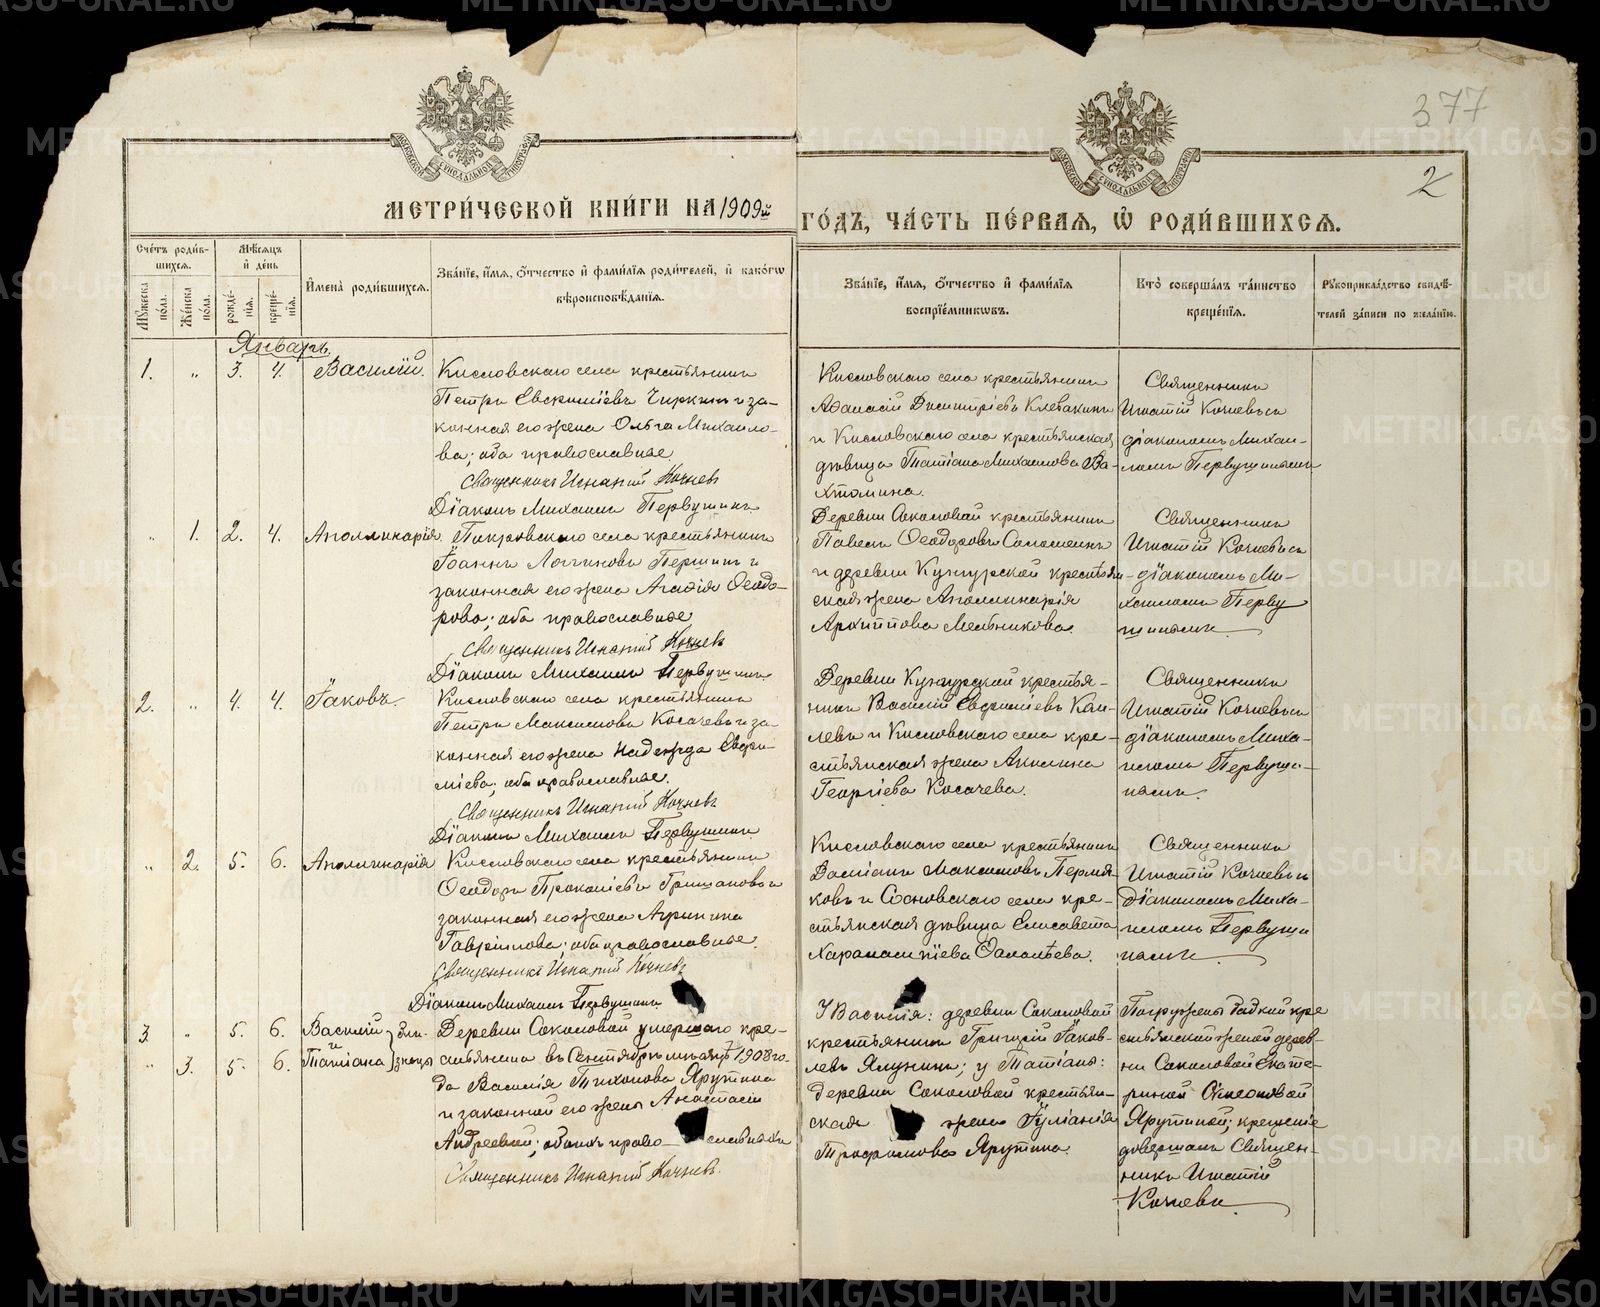 377
2
МОСКОВСКОЙ СѴНОДАЛЬНОЙ ТИПОГРАФІИ
МОСКОВСКОЙ СѴНОДАЛЬНОЙ ТИПОГРАФІИ
МЕТРИ́ЧЕСКОЙ КНИ́ГИ НА 1909й
ГО́ДЪ, ЧА́СТЬ ПЕ́РВАЯ, Ѡ РОДИ́ВШИХСЯ.
Сче́тъ роди́в-
шихся.
Мѣ́сяцъ
и҆ де́нь
Мꙋ́жеска по́ла.
Же́нска по́ла.
рожде́-
нїя.
креще́-
нїя.
И҆мена̀ роди́вшихся.
Зва́нїе, и҆́мя, ѻ҆́тчество и҆ фами́лїя роди́телей, и҆ како́гѡ
вѣроисповѣ́данїя.
Зва́нїе, и҆́мя, ѻ҆́тчество и҆ фами́лїя
воспрїе́мникѡвъ.
Кто̀ соверша́лъ та́инство
креще́нїя.
Рꙋкоприкла́дство свидѣ́-
телей за́писи по жела́нїю.
Январь.
1. " 3. 4. Василій.
Кисловскаго села крестьянинъ
Петръ Евсиміевъ Чиркинъ и за-
конная его жена Ольга Михаило-
ва; оба православные
Священникъ Игнатій Кочневъ
Діаконъ Михаилъ Первушинъ
Кисловскаго села крестьянинъ
Аѳанасій Димитріевъ Клевакинъ
и Кисловскаго села крестьянская
дѣвица Татіана Михаилова Ва-
хтомина.
Священникъ
Игнатій Кочневъ съ
діакономъ Михаи-
ломъ Первушинымъ
" 1. 2. 4. Аполлинарія.
Покровскаго села крестьянинъ
Іоаннъ Логгиновъ Першинъ и
законная его жена Агаѳія Ѳеодо-
рова; оба православные
Священникъ Игнатій Кочневъ
Діаконъ Михаилъ Первушинъ
Деревни Соколовой крестьянинъ
Павелъ Ѳеодоровъ Соломеинъ
и деревни Кунгурской крестьян-
ская жена Аполлинарія
Архиппова Мельникова.
Священникъ
Игнатій Кочневъ съ
діакономъ Ми-
хаиломъ Перву
шинымъ.
2. " 4. 4. Іаковъ.
Кисловскаго села крестьянинъ
Петръ Максимовъ Косачевъ и за-
конная его жена Надежда Евфи-
міева; оба православные.
Священникъ Игнатій Кочневъ
Діаконъ Михаилъ Первушинъ
Деревни Кунгурской крестья-
нинъ Василій Евфиміевъ Коп-
левъ и Кисловскаго села кре-
стьянская жена Акилина
Георгіева Косачева.
Священникъ
Игнатій Кочневъ съ
діакономъ Миха-
иломъ Первуши-
нымъ.
" 2. 5. 6. Аполлинарія
Кисловскаго села крестьянинъ
Ѳеодоръ Прокопіевъ Гришановъ и
законная его жена Агрипина
Гавріилова; оба православные.
Священникъ Игнатій Кочневъ
Діаконъ Михаилъ Первушинъ
Кисловскаго села крестьянинъ
Василій Максимовъ Пермя-
ковъ и Сосновскаго села кре-
стьянская дѣвица Елисавета
Харалампіева
Священникъ
Игнатій Кочневъ съ
Діакономъ Миха-
иломъ Первуши
нымъ.
3. " 5. 6. Василій
и
" 3. 5. 6. Татіана
бли-
знецы
Деревни Соколовой умершаго кре-
стьянина въ Сентябрѣ мѣсяцѣ 1908 го-
да Василія Тихонова Ярутина
и законной его жены Анастасіи
Андреевой; обоихъ право-славныхъ
Священникъ Игнатій Кочневъ.
У Василія: деревни Соколовой
крестьянинъ Григорій Іаков-
левъ Ялунинъ; у Татіаны:
деревни Соколовой крестьян-
ская жена Іуліанія
Трофимова Ярутина.
Погружены бабкой кре
стьянской женой дерев-
ни Соколовой Екате-
риной
Ярутиной; крещеніе
довершалъ Священ-
никъ Игнатій
Кочневъ.